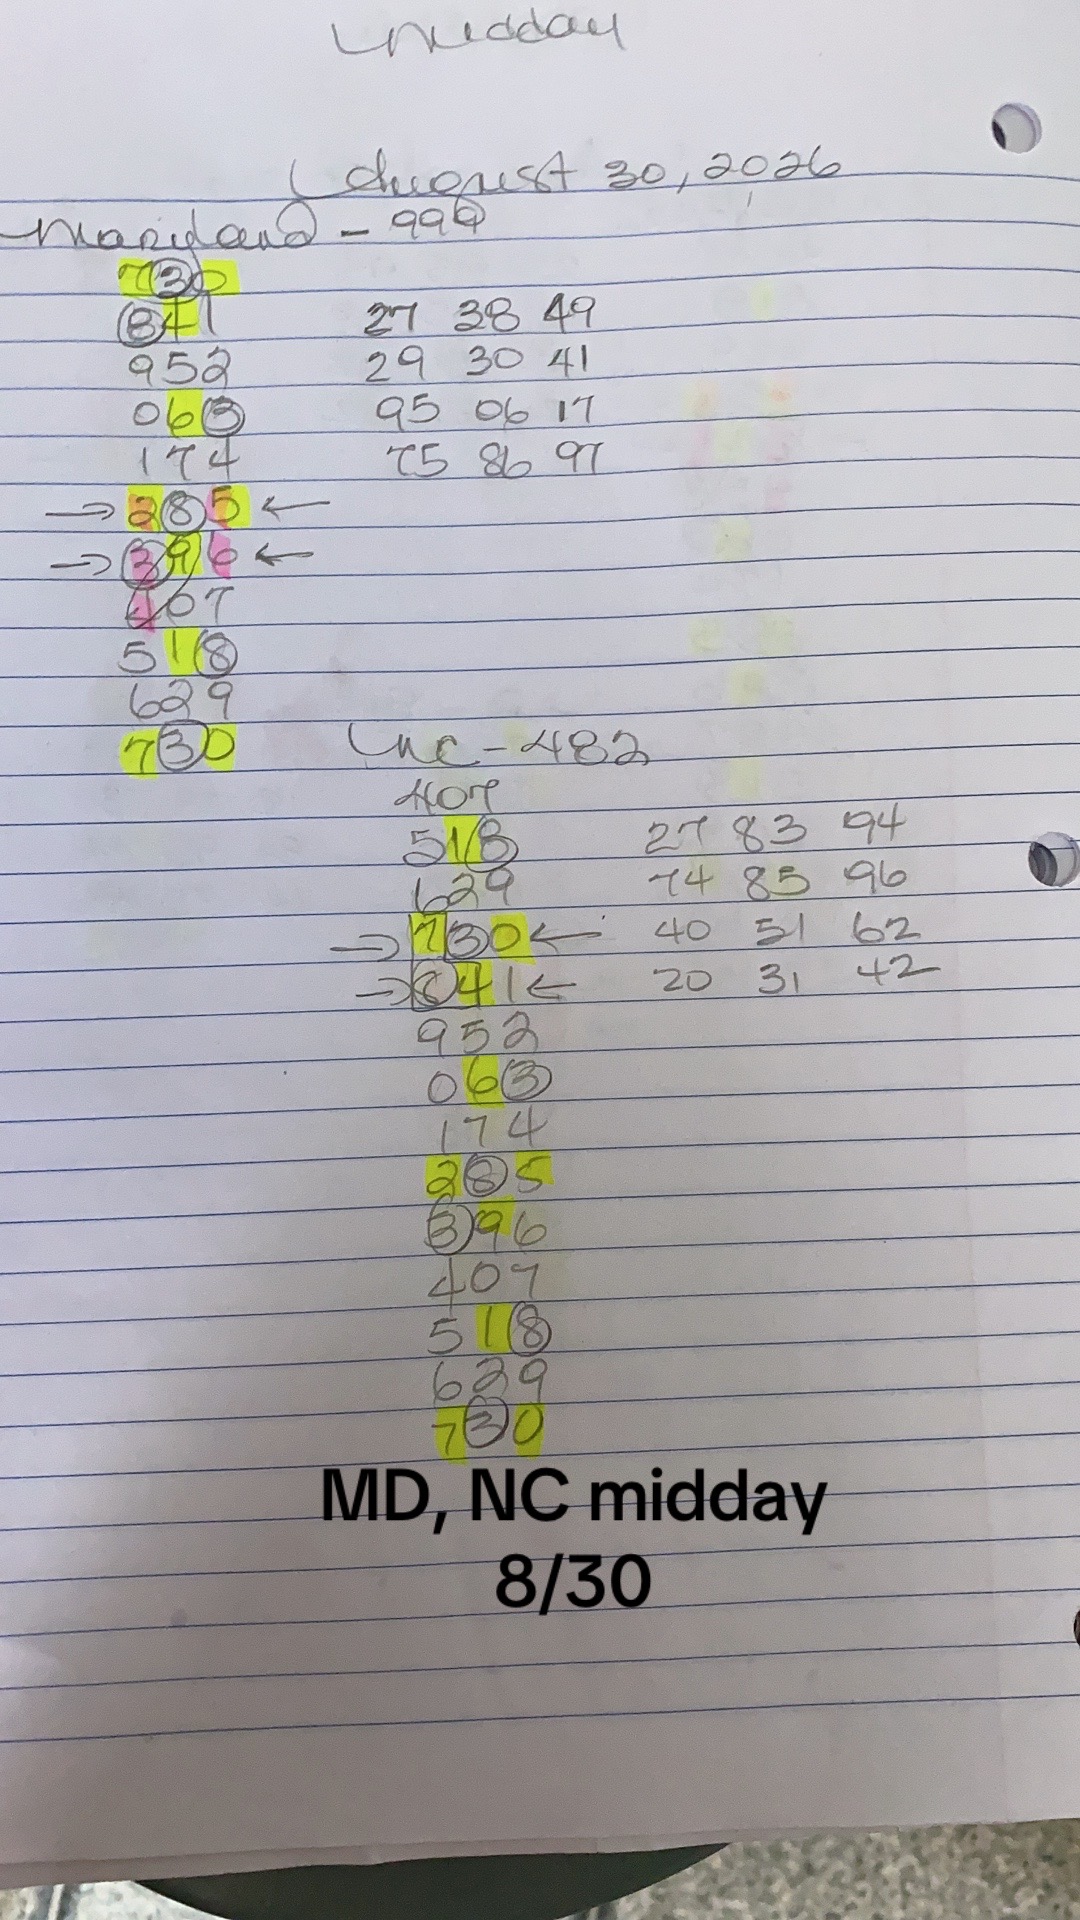 Midday
August 30, 2026
Maryland - 999
730
841 27 38 49
952 29 30 41
063 95 06 17
174 75 86 97
→ 285 ←
→ 396 ←
407
518
629
730
NC - 482
407
518 27 83 94
629 74 85 96
→ 730 ← 40 51 62
→ 841 ← 20 31 42
952
063
174
285
396
407
518
629
730
MD, NC midday
8/30